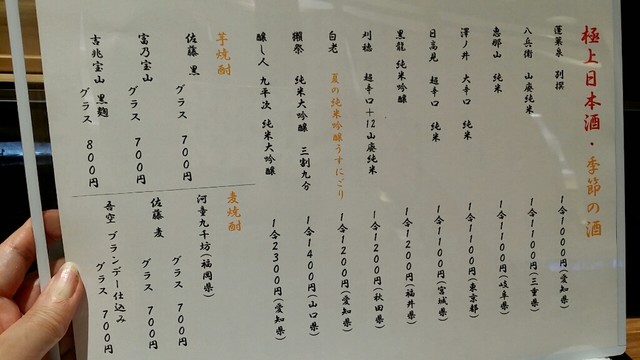 極上日本酒・季節の酒
蓬莱泉 別撰 1合1000円(愛知県)
八兵衛 山廃純米 1合1100円(三重県)
恵那山 純米 1合1100円(岐阜県)
澤ノ井 大辛口 純米 1合1100円(東京都)
日高見 超辛口 純米 1合1100円(宮城県)
黒龍 純米吟醸 1合1200円(福井県)
刈穂 超辛口+12山廃純米 1合1200円(秋田県)
白老 夏の純米吟醸うすにごり 1合1200円(愛知県)
獺祭 純米大吟醸 三割九分 1合1400円(山口県)
醸し人 九平次 純米大吟醸 1合2300円(愛知県)
芋焼酎
佐藤 黒 グラス 700円
富乃宝山 グラス 700円
吉兆宝山 黒麹 グラス 800円
麦焼酎
河童九千坊(福岡県) グラス 700円
佐藤 麦 グラス 700円
吾空 ブランデー仕込み グラス 700円